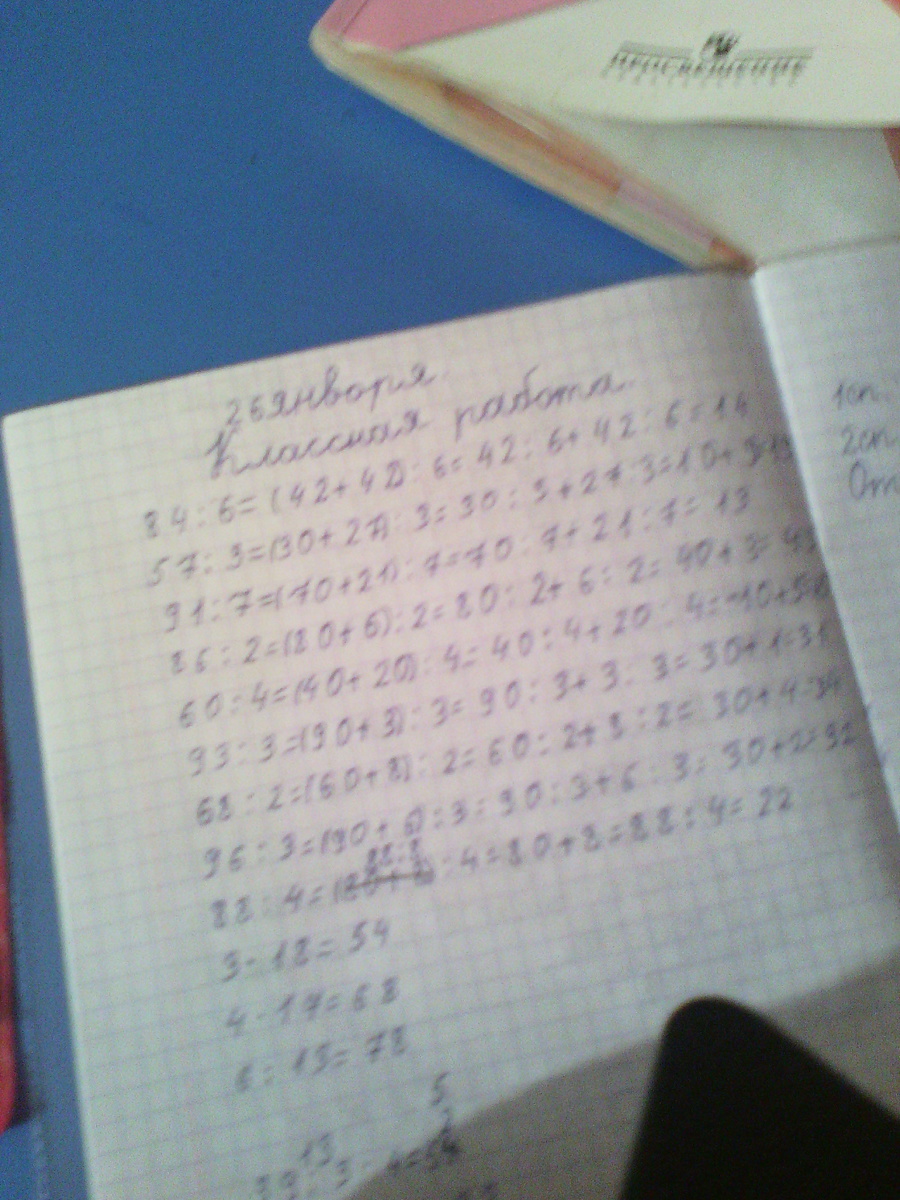 ПРОСВЕЩЕНИЕ
26 января.
Классная работа.
84:6=(42+42):6=42:6+42:6=14
57:3=(30+27):3=30:3+27:3=10+9=19
91:7=(70+21):7=70:7+21:7=13
86:2=(80+6):2=80:2+6:2=40+3=43
60:4=(40+20):4=40:4+20:4=10+5=15
93:3=(90+3):3=90:3+3:3=30+1=31
68:2=(60+8):2=60:2+8:2=30+4=34
96:3=(90+6):3=90:3+6:3=30+2=32
88:4=(80+8):4=80+8=88:4=22
3·18=54
4·17=68
6:13=78
1сп.
2сп
От